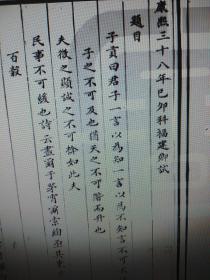 康熙三十八年己卯科福建鄉試
題目
子貢曰君子一言以為知一言以為不知言不可不
子之不可及也猶天之不可階而升也
夫微之顯誠之不可揜如此夫
民事不可緩也詩云晝爾于茅宵爾索綯亟其乘
百穀